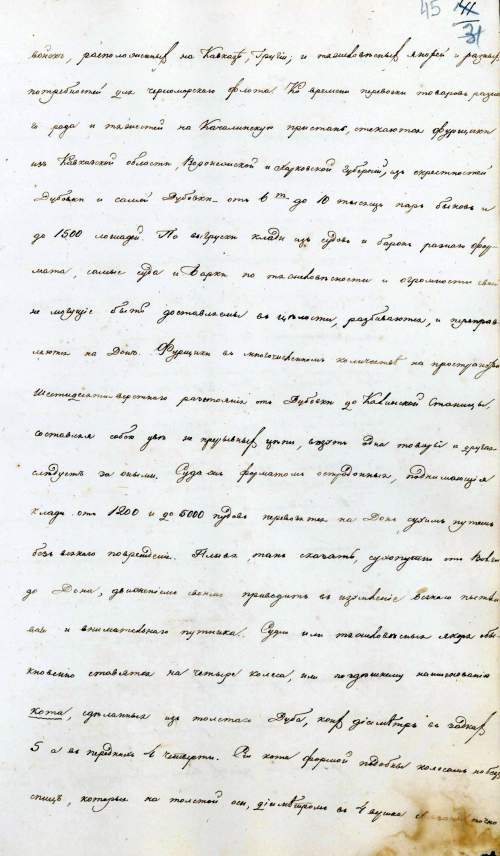 45 44
31
войскъ, расположенныхъ на Кавказѣ, Грузіи; и тяжеловѣсныхъ якорей и разныхъ
потребностей для черноморскаго флота. Ко времени перевозки товаровъ разна
го рода и тяжестей на Качалинскую пристань, стекаются фурщики
изъ Кавказской области, Воронежской и Харковской Губерній, изъ окрестностей
Дубовки и самой Дубовки отъ 6 т до 10 тысящъ паръ быковъ и
до 1500 лошадей. По выгрузки клади изъ судовъ и барокъ разнаго фор-
мата, самые суда и барки по тяжеловѣсности и огромности своей
не могущіе быть доставляемы въ цѣлости, разбиваются, и переправ
ляются на Донъ. Фурщики въ многочисленномъ количествѣ на пространствѣ
шестидесяти верстнаго разстоянія отъ Дубовки до Станицы,
составляя собою двѣ не прерывныя цѣпи, везутъ одна товары и другая
слѣдуетъ за оными. Суда же форматомъ остродонныя, поднимающія
клади отъ 1200 и до 5000 пудовъ перевозятся на Донъ сухимъ путемъ
безъ всякаго поврежденія. такъ сказать, сухопутно отъ Волги
до Дона, движеніемъ своимъ приводитъ въ изумленіе всякаго
и внимательнаго путника. Судно или тяжеловѣсныя якоря обы
кновенно ставятся на четыре колеса, или по здѣшнему наименованію
кота, сдѣланныхъ изъ толстаго Дуба, коихъ діаметръ въ заднихъ
5 а въ переднихъ 4 четверти. Сіи коты формой подобны колесамъ но безъ
спицъ, которыя на толстой оси, діаметромъ въ 4 вершка